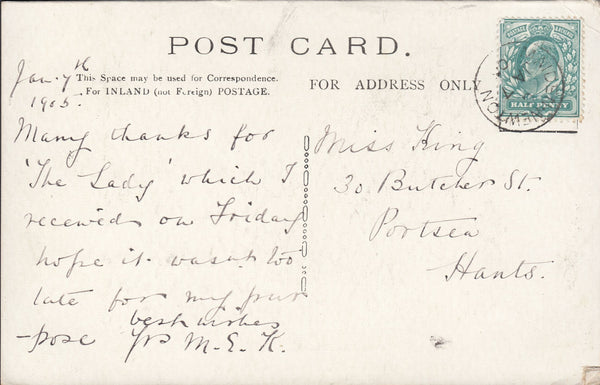 POST CARD.
Jan. 7th
1905.
This Space may be used for Correspondence.
For INLAND (not Foreign) POSTAGE.
FOR ADDRESS ONLY
HALF PENNY
Many thanks for
'The Lady' which I
received on Friday
hope it wasnt too
late for my pur
-pose
best wishes
yrs M. E. K.
Miss King
30 Butcher St.
Portsea
Hants.